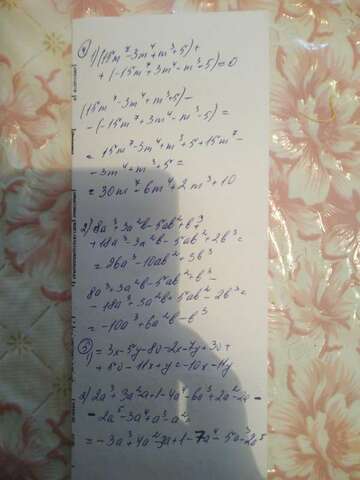 ④ 1) (15m⁷-3m⁴+m³+5)+
+(-15m⁷+3m⁴-m³-5)=0
(15m⁷-3m⁴+m³+5)-
-(-15m⁷+3m⁴-m³-5)=
=15m⁷-3m⁴+m³+5+15m⁷-
-3m⁴+m³+5=
=30m⁷-6m⁴+2m³+10
2) 8a³+3a²b-5ab²+b³
+18a³-3a²b-5ab²+2b³=
=26a³-10ab²+3b³
8a³+3a²b-5ab²+b³-
-18a³+3a²b+5ab²-2b³=
=-10a³+6a²b-b³
⑤ 1) =3x-5y-8v-2x-7y+3v+
+5v-11x+y=-10x-11y
2) 2a³+3a²-a+1-4a⁴-6a³+2a²-2a-
-2a⁵-3a⁴+a³-a²
=-3a³+4a²-3a+1-7a⁴-5a-2a⁵